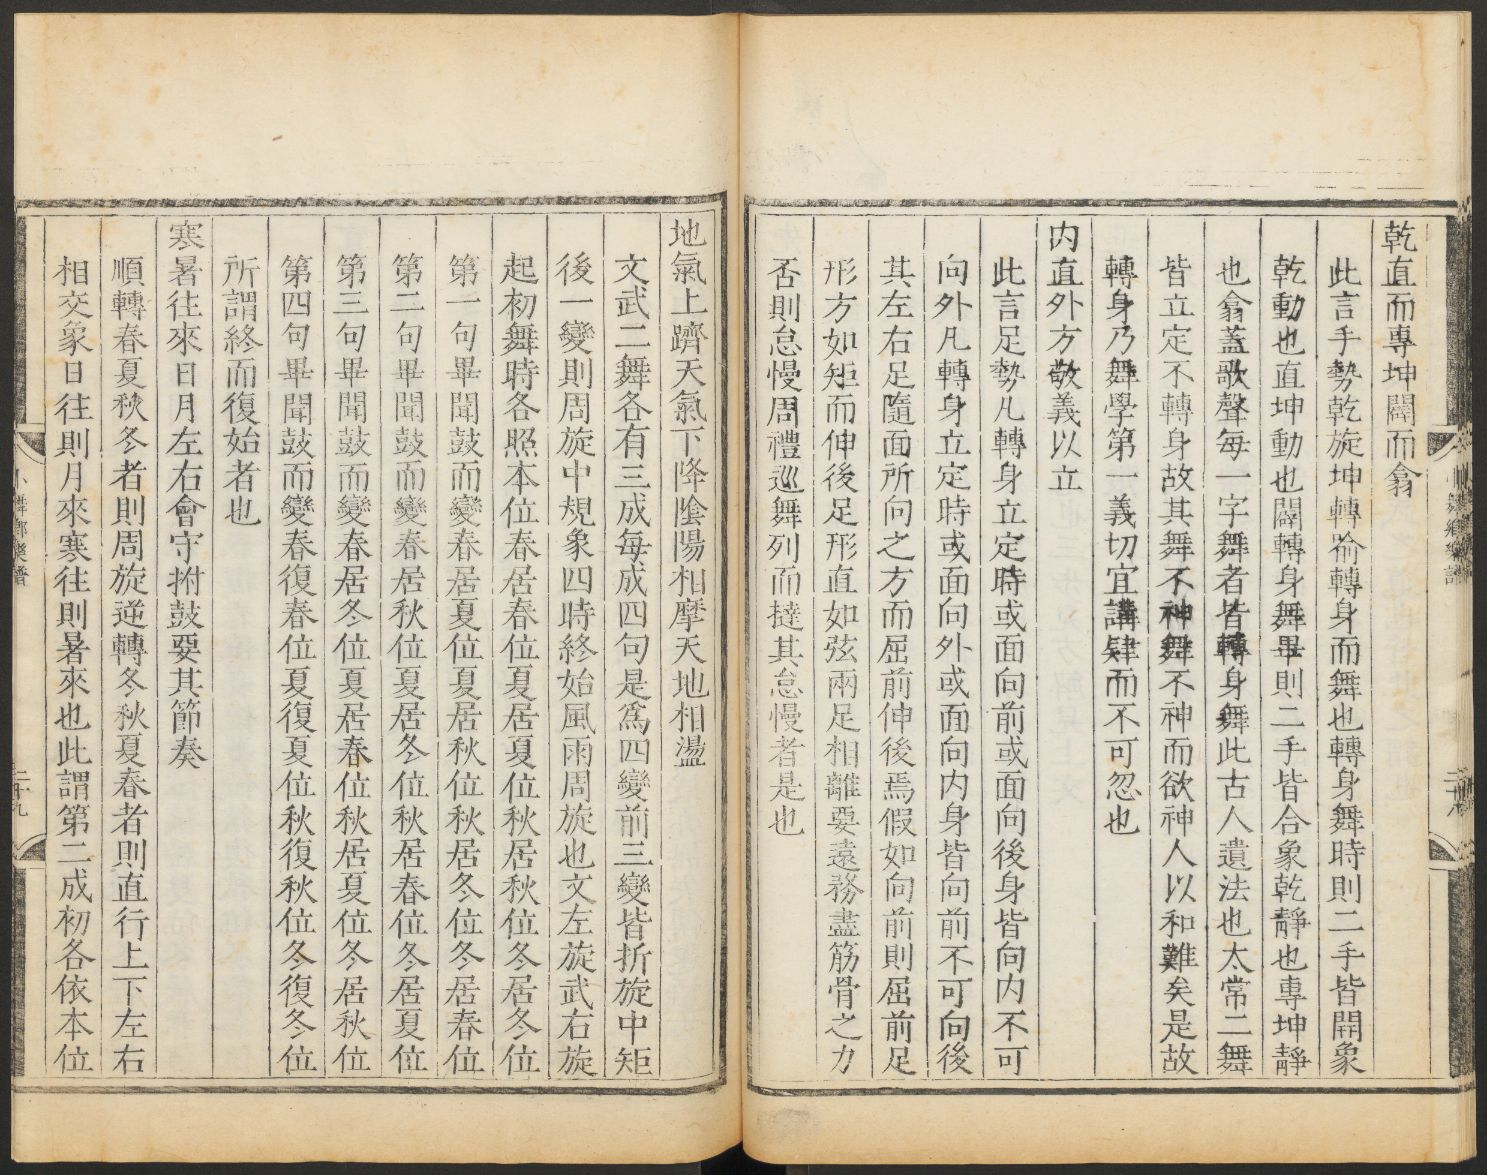 乾直而專坤闢而翕
此言手勢乾旋坤轉喻轉身而舞也轉身舞時則二手皆開象
乾動也直坤動也闢轉身舞畢則二手皆合象乾靜也專坤靜
也翕蓋歌聲每一字舞者皆轉身舞此古人遺法也太常二舞
皆立定不轉身故其舞不神舞不神而欲神人以和難矣是故
轉身乃舞學第一義切宜講肄而不可忽也
内直外方敬義以立
此言足勢凡轉身立定時或面向前或面向後身皆向内不可
向外凡轉身立定時或面向外或面向内身皆向前不可向後
其左右足隨面所向之方而屈前伸後焉假如向前則屈前足
形方如矩而伸後足形直如弦兩足相離要遠務盡筋骨之力
否則怠慢周禮巡舞列而撻其怠慢者是也
小舞鄉樂譜
二十八
地氣上躋天氣下降陰陽相摩天地相盪
文武二舞各有三成每成四句是爲四變前三變皆折旋中矩
後一變則周旋中規象四時終始風雨周旋也文左旋武右旋
起初舞時各照本位春居春位夏居夏位秋居秋位冬居冬位
第一句畢聞鼓而變春居夏位夏居秋位秋居冬位冬居春位
第二句畢聞鼓而變春居秋位夏居冬位秋居春位冬居夏位
第三句畢聞鼓而變春居冬位夏居春位秋居夏位冬居秋位
第四句畢聞鼓而變春復春位夏復夏位秋復秋位冬復冬位
所謂終而復始者也
寒暑往來日月左右會守拊鼓要其節奏
順轉春夏秋冬者則周旋逆轉冬秋夏春者則直行上下左右
相交象日往則月來寒往則暑來也此謂第二成初各依本位
小舞鄉樂譜
二十九